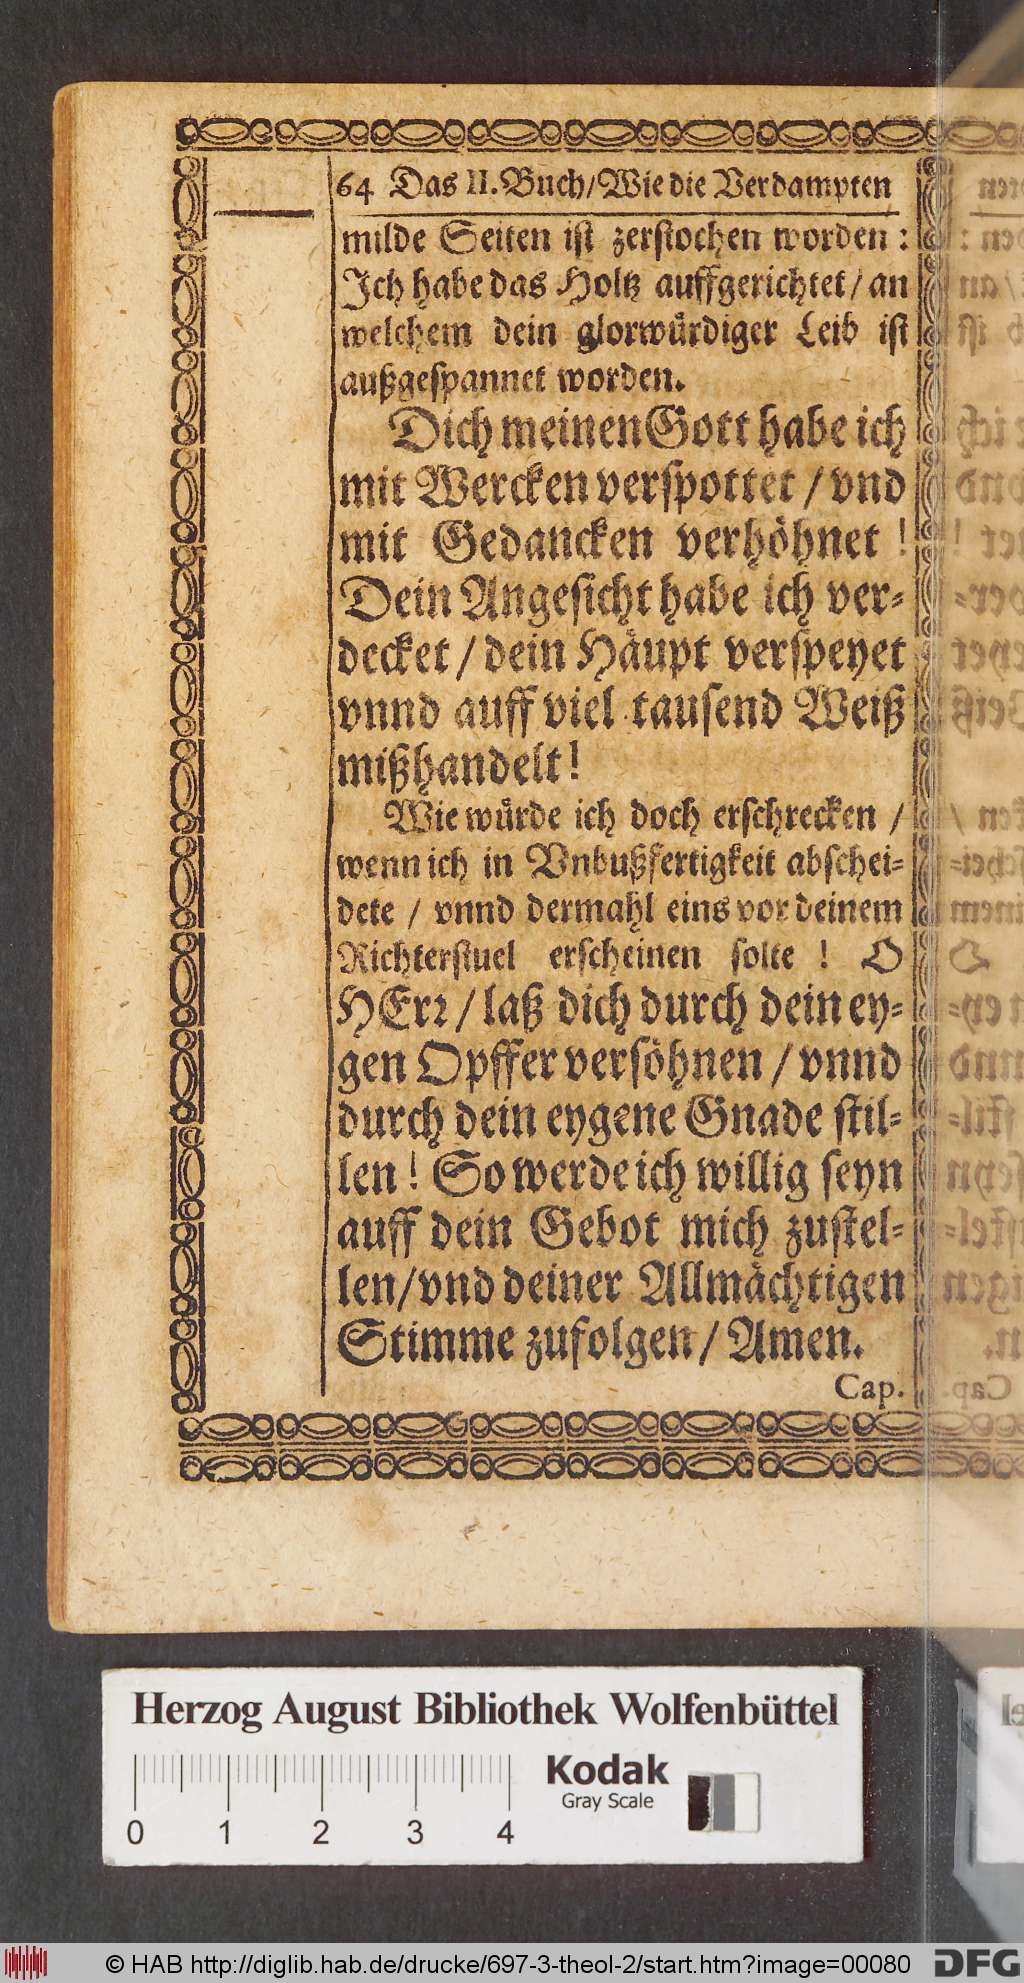 64 Das II. Buch/Wie die Verdampten
milde Seiten ist zerstochen worden :
Ich habe das Holtz auffgerichtet/ an
welchem dein glorwuͤrdiger Leib ist
außgespannet worden.
Dich meinen Gott habe ich
mit Wercken verspottet / vnd
mit Gedancken verhoͤhnet !
Dein Angesicht habe ich ver-
decket / dein Haͤupt verspeyet
vnnd auff viel tausend Weiß
mißhandelt!
Wie wuͤrde ich doch erschrecken /
wenn ich in Vnbußfertigkeit abschei-
dete / vnnd dermahl eins vor deinem
Richterstuel erscheinen solte ! O
HErꝛ / laß dich durch dein ey-
gen Opffer versoͤhnen / vnnd
durch dein eygene Gnade stil-
len! So werde ich willig seyn
auff dein Gebot mich zustel-
len/vnd deiner Allmaͤchtigen
Stimme zufolgen / Amen.
Cap.
Herzog August Bibliothek Wolfenbüttel
Kodak
Gray Scale
0 1 2 3 4
© HAB http://diglib.hab.de/drucke/697-3-theol-2/start.htm?image=00080
DFG